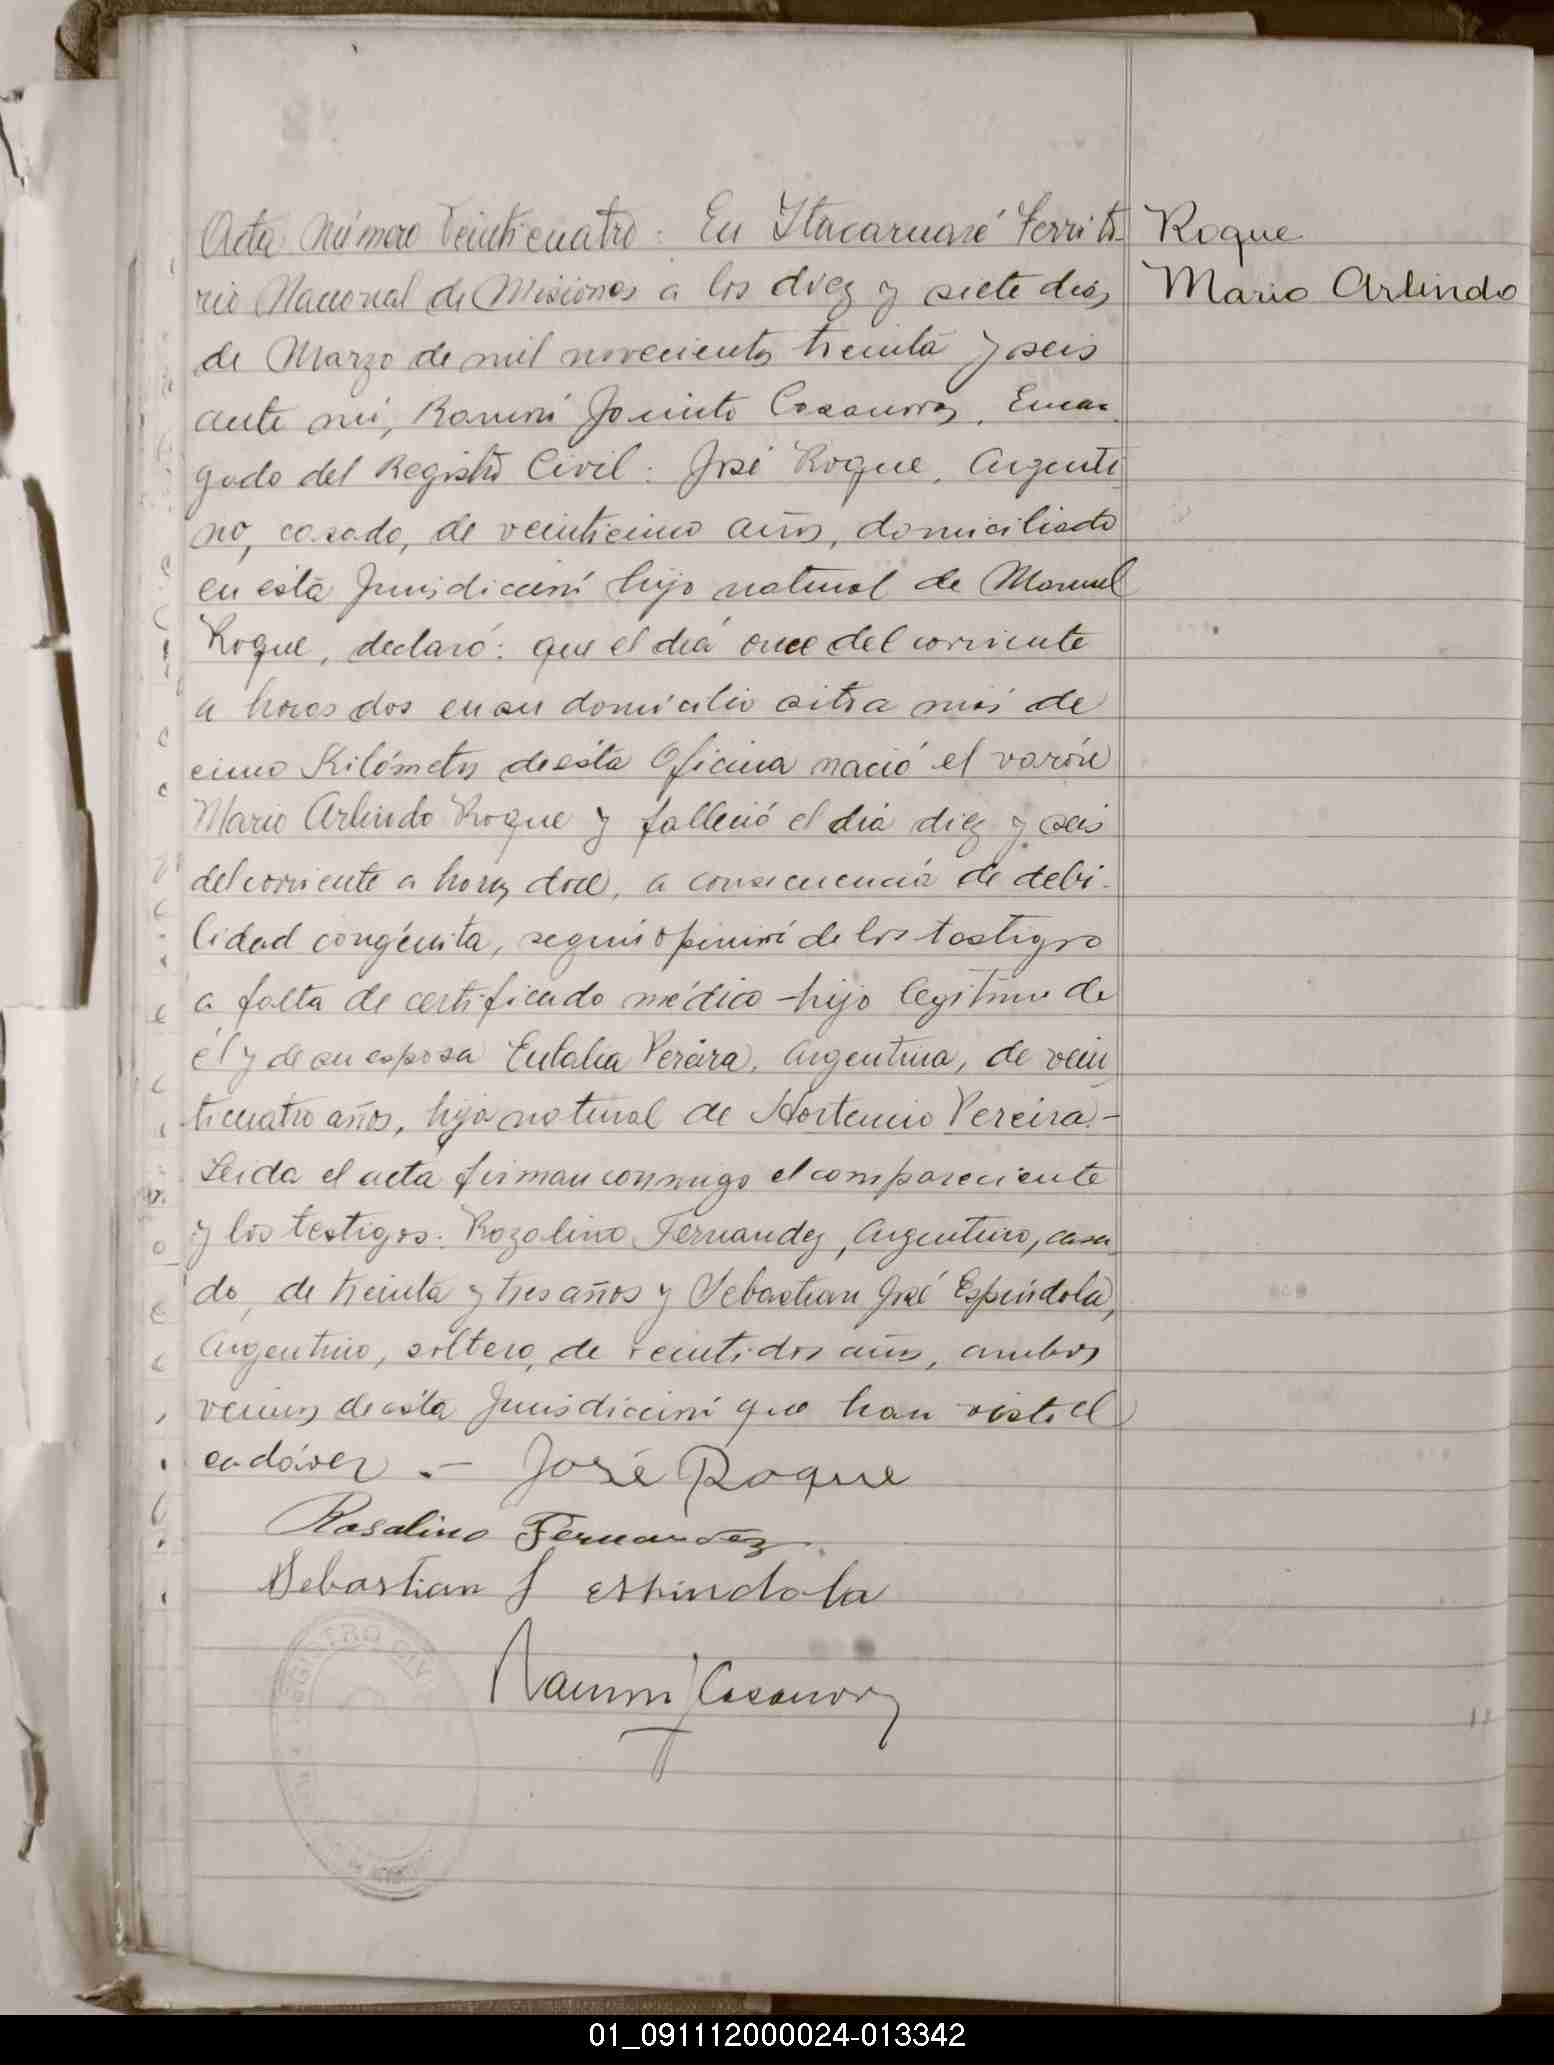 Acta Número Veinticuatro: En Itacaruaré Territo-
rio Nacional de Misiones a los diez y siete días
de Marzo de mil novecientos treinta y seis
ante mí, Ramón Jacinto Casanova, Encar-
gado del Registro Civil: José Roque, Argenti
no, casado, de veinticinco años, domiciliado
en ésta Jurisdicción hijo natural de Manuel
Roque, declaró: que el día once del corriente
a horas dos en su domicilio sito a más de
cinco Kilómetros de ésta Oficina nació el varón
Mario Arlindo Roque y falleció el día diez y seis
del corriente a horas doce, a consecuencia de debi-
lidad congénita, según opinión de los testigos
a falta de certificado médico - hijo legítimo de
él y de su esposa Eulalia Pereira, Argentina, de vein
ticuatro años, hija natural de Hortencio Pereira.-
Leída el acta firman conmigo el compareciente
y los testigos: Rozalino Fernandez, Argentino, casa
do, de treinta y tres años y Sebastian José Espíndola,
Argentino, soltero, de veintidos años, ambos
vecinos de ésta Jurisdicción que han visto el
cadáver .-
José Roque
Rosalino Fernandez
Sebastian J espindola
Ramón J Casanova
REGISTRO CIVIL
Roque
Mario Arlindo
01_091112000024-013342